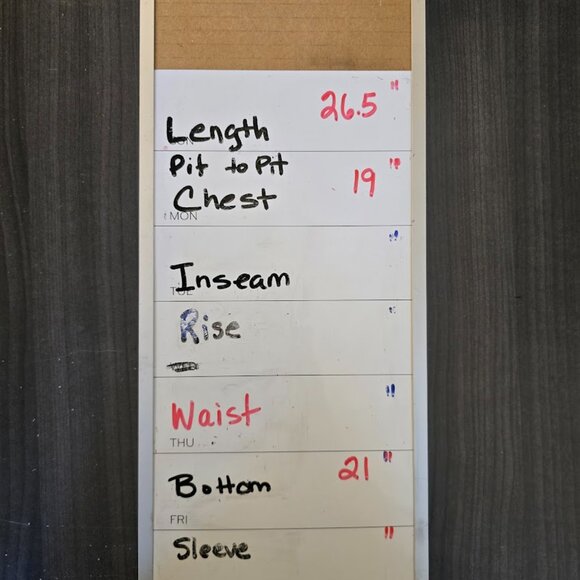 26.5 "
Length
Pit to Pit
Chest 19 "
MON
"
Inseam
Rise "
Waist "
THU
21 "
Bottom
FRI
Sleeve "